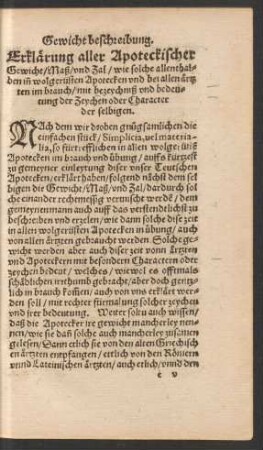 Gewicht beschreibung.
Erklärung aller Apoteckischer
Gewicht/Maß/vnd Zal/ wie solche allenthal-
ben iñ wolgerüsten Apotecken vnd bei allen ärtz
ten im brauch/mit bezeychnüß vnd bedeü-
tung der Zeychen oder Character
der selbigen.
NAch dem wir droben gnůgsamlichen die
einfachen stück/ Simplicia, uel materia-
lia, so fürtrefflichen in allen wolgerüsts
Apotecken im brauch vnd übung/ auffs kürtzest
zů gemeyner einleytung diser vnser Teutschen
Apotecken/ erkläret haben/ folgend nůhst dem sel
bigen die Gewicht/Maß/vnd Zal/dardurch sol
che einander rechtmessig vermischt werdẽ/ dem
gemeynen mann auch auff das verstendtlichst zů
beschreiben vnd erzelen/ wie dann solche diser zeit
in allen wolgerüsten Apotecken in übung/ auch
von allen ärtzten gebraucht werden. Solche ge-
wicht werden aber auch diser zeit vonn Artzten
vnd Apoteckern mit besondern Charactern oder
zeychen bedeut/ welches/ wiewol es offtmals
schädlichen irrthumb gebracht/ aber doch gentz-
lich in brauch kommen/ auch von vns erklärt wer-
den soll/ mit rechter fürmalung solcher zeychen
vnd irer bedeutung. Weiter soltu auch wissen/
daß die Apotecker ire gewicht mancherley nen-
nen/ wie sie dañ solche auch mancherley zůsamen
gelesen/ Dann etlich sie von den alten Griechisch
en ärtzten empfangen/ etlich von den Römern
vnnd Lateinischen ärtzten/ auch etlich/ vnnd den
c v